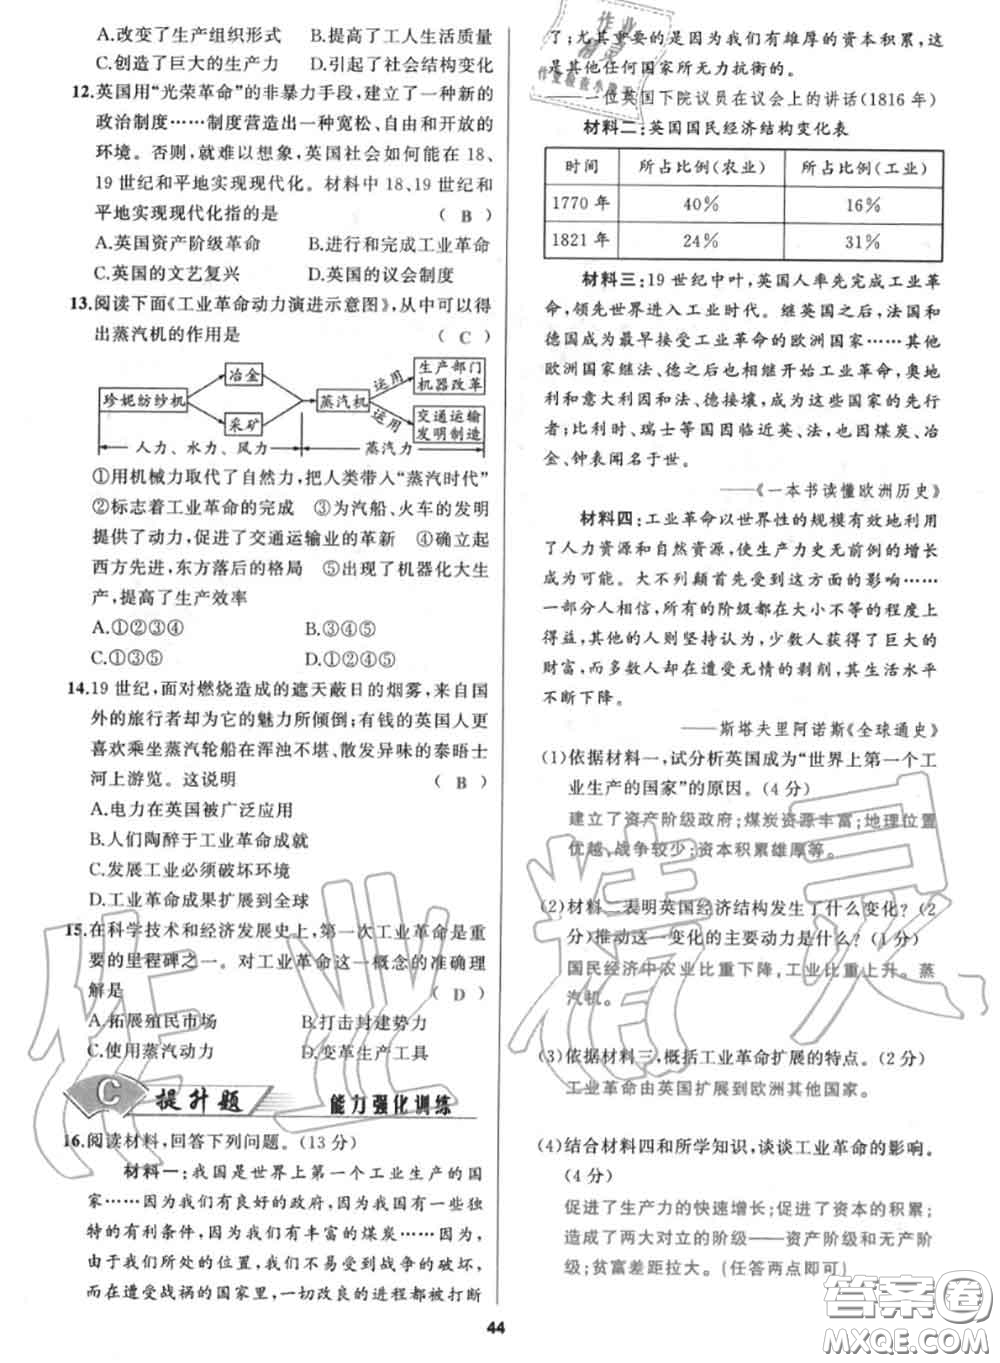 A.改变了生产组织形式　B.提高了工人生活质量
C.创造了巨大的生产力　D.引起了社会结构变化
12.英国用“光荣革命”的非暴力手段,建立了一种新的
政治制度……制度营造出一种宽松、自由和开放的
环境。否则,就难以想象,英国社会如何能在 18、
19 世纪和平地实现现代化。材料中 18、19 世纪和
平地实现现代化指的是　( B )
A.英国资产阶级革命　B.进行和完成工业革命
C.英国的文艺复兴　D.英国的议会制度
13.阅读下面《工业革命动力演进示意图》,从中可以得
出蒸汽机的作用是　( C )
珍妮纺纱机　冶金　采矿　蒸汽机　运用　运用　生产部门机器改革　交通运输发明制造
人力、水力、风力　蒸汽力
①用机械力取代了自然力,把人类带入“蒸汽时代”
②标志着工业革命的完成　③为汽船、火车的发明
提供了动力,促进了交通运输业的革新　④确立起
西方先进,东方落后的格局　⑤出现了机器化大生
产,提高了生产效率
A.①②③④　B.②③⑤
C.①③⑤　D.①②④⑤
14.19 世纪,面对燃烧造成的遮天蔽日的烟雾,来自国
外的旅行者却为它的魅力所倾倒;有钱的英国人更
喜欢乘坐蒸汽轮船在浑浊不堪、散发异味的泰晤士
河上游览。这说明　( B )
A.电力在英国被广泛应用
B.人们陶醉于工业革命成就
C.发展工业必须破坏环境
D.工业革命成果扩展到全球
15.在科学技术和经济发展史上,第一次工业革命是重
要的里程碑之一。对工业革命这一概念的准确理
解是　( D )
A.拓展殖民市场　B.打击封建势力
C.使用蒸汽动力　D.变革生产工具
C 提升题　能力强化训练
16.阅读材料,回答下列问题。(13 分)
材料一:我国是世界上第一个工业生产的国
家……因为我们有良好的政府,因为我国有一些独
特的有利条件,因为我们有丰富的煤炭……因为
由于我们所处的位置,我们不易受到战争的破坏,而
在遭受战祸的国家里,一切改良的进程都被打断
了;尤其重要的是因为我们有雄厚的资本积累,这
是其他任何国家所无力抗衡的。
——一位英国下院议员在议会上的讲话(1816 年)
材料二:英国国民经济结构变化表
时间　所占比例(农业)　所占比例(工业)
1770 年　40%　16%
1821 年　24%　31%
材料三:19 世纪中叶,英国人率先完成工业革
命,领先世界进入工业时代。继英国之后,法国和
德国成为最早接受工业革命的欧洲国家……其他
欧洲国家继法、德之后也相继开始工业革命,奥地
利和意大利因和法、德接壤,成为这些国家的先行
者;比利时、瑞士等国因临近英、法,也因煤炭、冶
金、钟表闻名于世。
——《一本书读懂欧洲历史》
材料四:工业革命以世界性的规模有效地利用
了人力资源和自然资源,使生产力史无前例的增长
成为可能。大不列颠首先受到这方面的影响……
一部分人相信,所有的阶级都在大小不等的程度上
得益,其他的人则坚持认为,少数人获得了巨大的
财富,而多数人却在遭受无情的剥削,其生活水平
不断下降。
——斯塔夫里阿诺斯《全球通史》
(1)依据材料一,试分析英国成为“世界上第一个工
业生产的国家”的原因。(4 分)
建立了资产阶级政府;煤炭资源丰富;地理位置
优越,战争较少;资本积累雄厚等。
(2)材料二表明英国经济结构发生了什么变化?(2
分)推动这一变化的主要动力是什么?(1 分)
国民经济中农业比重下降,工业比重上升。蒸
汽机。
(3)依据材料三,概括工业革命扩展的特点。(2 分)
工业革命由英国扩展到欧洲其他国家。
(4)结合材料四和所学知识,谈谈工业革命的影响。
(4 分)
促进了生产力的快速增长;促进了资本的积累;
造成了两大对立的阶级——资产阶级和无产阶
级;贫富差距拉大。(任答两点即可)
44
作业精灵
答案圈
MXQE.COM